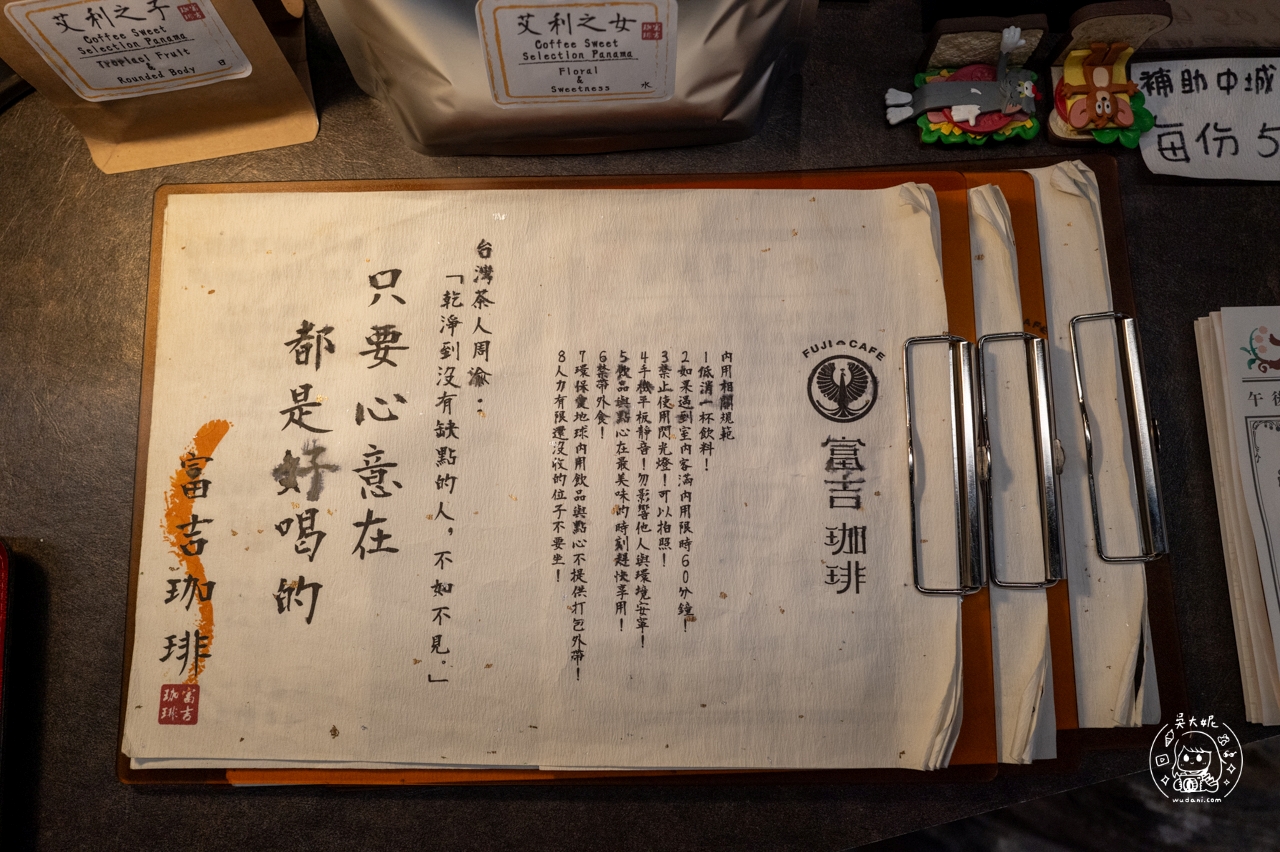 艾利之子
Coffee Sweet
Selection Panama
Tropiacl Fruit
&
Rounded Body
日
艾利之女
Coffee Sweet
Selection Panama
Floral
&
Sweetness
水
補助中城
每份5
FUJI CAFE
富吉珈琲
內用相關規範
1低消一杯飲料！
2如果遇到室內客滿內用限時60分鐘！
3禁止使用閃光燈！可以拍照！
4手機平板靜音！勿影響他人與環境安寧！
5飲品與點心在最美味的時刻趕快享用！
6禁帶外食！
7環保愛地球內用飲品與點心不提供打包外帶！
8人力有限還沒收的位子不要坐！
台灣茶人周渝：
「乾淨到沒有缺點的人，不如不見。」
只要心意在
都是好喝的
富吉珈琲
富吉
珈琲
午後
吳大妮
wudani.com